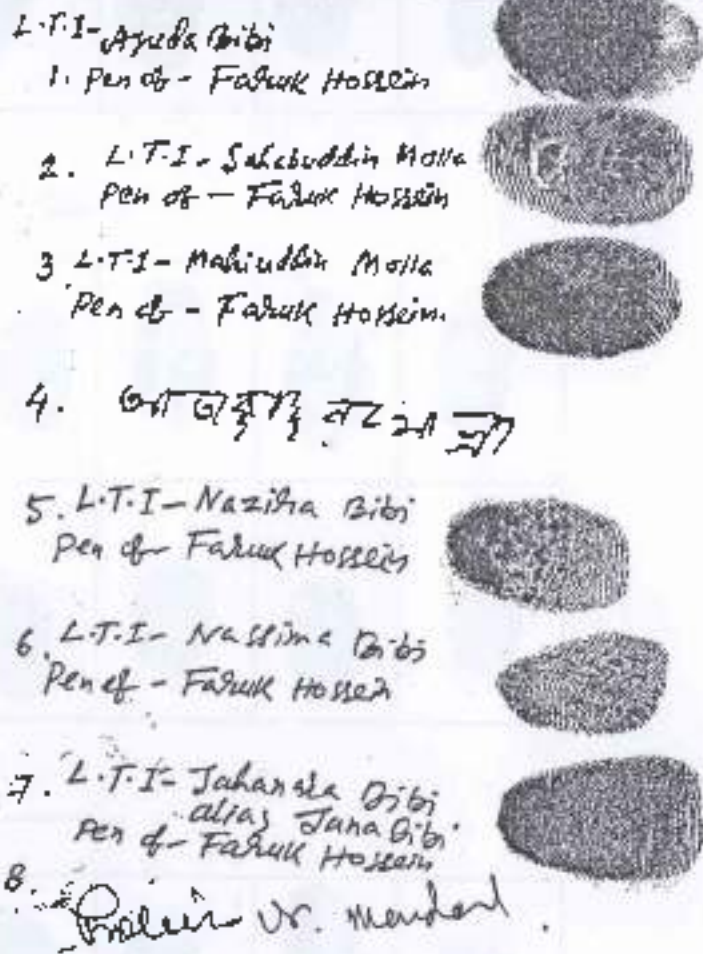 L.T.I- Ayeda Bibi
1. Pen of - Faruk Hossein
2. L.T.I - Sahabuddin Molla
Pen of - Faruk Hossein
3 L.T.I - Mahiuddin Molla
Pen of - Faruk Hossein.
4.
5. L.T.I - Nazira Bibi
Pen of - Faruk Hossein
6. L.T.I - Nassima Bibi
Pen of - Faruk Hossein
7. L.T.I - Jahanara Bibi
alias Jana Bibi
Pen of - Faruk Hossein
8.